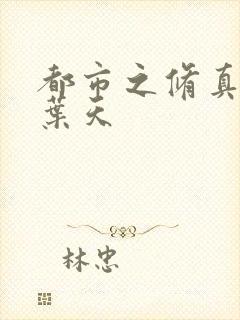 都市之脩真
葉天
林忠